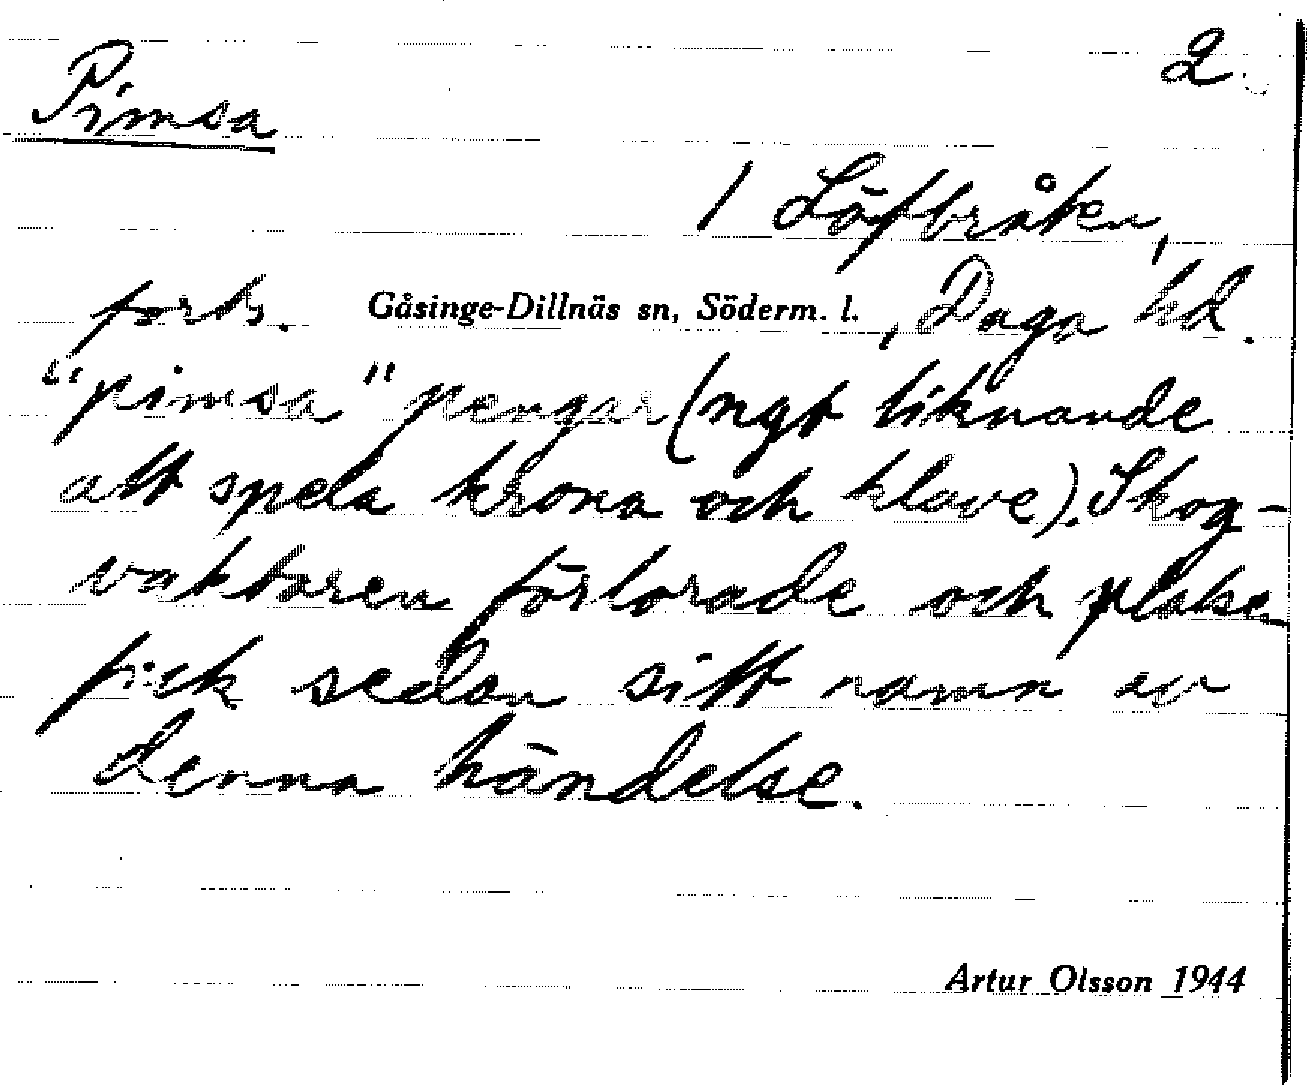 Pimsa
2.
/ Löfbråten,
forts. Gåsinge-Dillnäs sn, Söderm. l., Daga hd.
"pimsa" pengar (ngt liknande
att spela krona och klave). Skog-
vaktaren förlorade och platsen
fick sedan sitt namn av
denna händelse.
Artur Olsson 1944